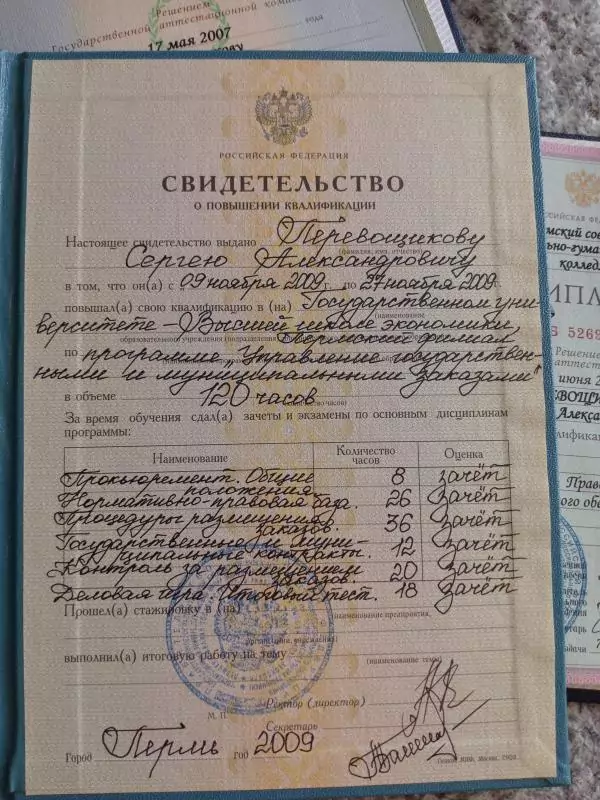 Решением
Государственной аттестационной
года
17 мая 2007
РОССИЙСКАЯ ФЕДЕРАЦИЯ
СВИДЕТЕЛЬСТВО
О ПОВЫШЕНИИ КВАЛИФИКАЦИИ
Настоящее свидетельство выдано Перевощикову
(фамилия, имя, отчество)
Сергею Александровичу
в том, что он(а) с 09 ноября 2009 г. по 27 ноября 2009 г.
повышал(а) свою квалификацию в (на) Государственном уни-
(наименование
верситете – Высшей школе экономики,
образовательного учреждения
Пермский филиал
по программе „Управление государствен-
ными и муниципальными заказами"
в объеме 120 часов
За время обучения сдал(а) зачеты и экзамены по основным дисциплинам
программы:
Наименование Количество часов Оценка
Прокьюремент. Общие положения. 8 зачёт
Нормативно-правовая база. 26 зачёт
Процедуры размещения заказов. 36 зачёт
Государственные и муни-
ципальные контракты. 12 зачёт
Контроль за размещением заказов. 20 зачёт
Деловая игра. Итоговый тест. 18 зачёт
Прошел(а) стажировку в (на)
(наименование предприятия,
организации, учреждения)
выполнил(а) итоговую работу на тему
(наименование темы)
Ректор (директор)
М. П.
Секретарь
Город Пермь год 2009
колле
5269
Решение
июня 2
Алекса
Право